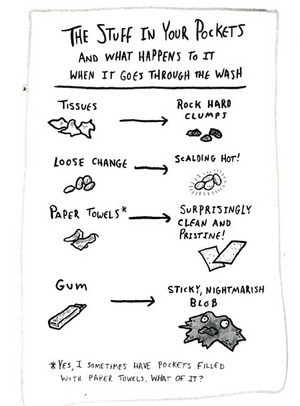 THE STUFF IN YOUR POCKETS
AND WHAT HAPPENS TO IT
WHEN IT GOES THROUGH THE WASH
TISSUES
ROCK HARD
CLUMPS
LOOSE CHANGE
SCALDING HOT!
PAPER TOWELS*
SURPRISINGLY
CLEAN AND
PRISTINE!
GUM
STICKY, NIGHTMARISH
BLOB
*YES, I SOMETIMES HAVE POCKETS FILLED
WITH PAPER TOWELS. WHAT OF IT?